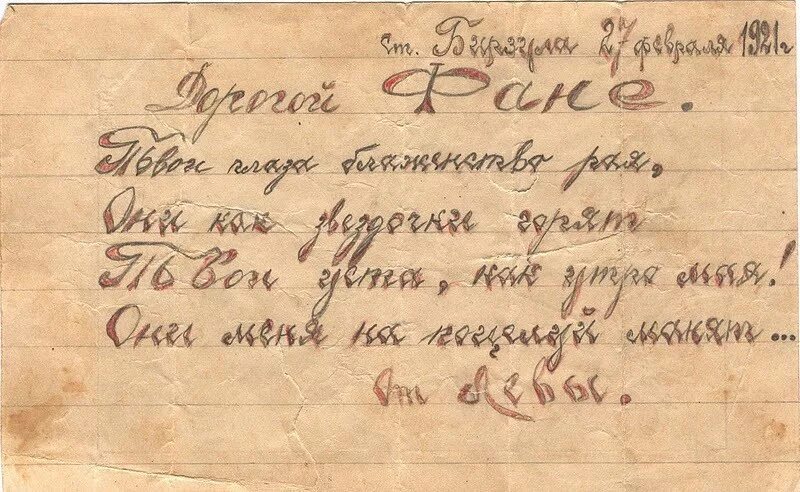 ст. Бирзула 27 февраля 1921г
Дорогой Фане.
Твои глаза блаженство рая,
Они как звездочки горят
Твои уста, как утро мая!
Они меня на поцелуй манят...
От Левы.